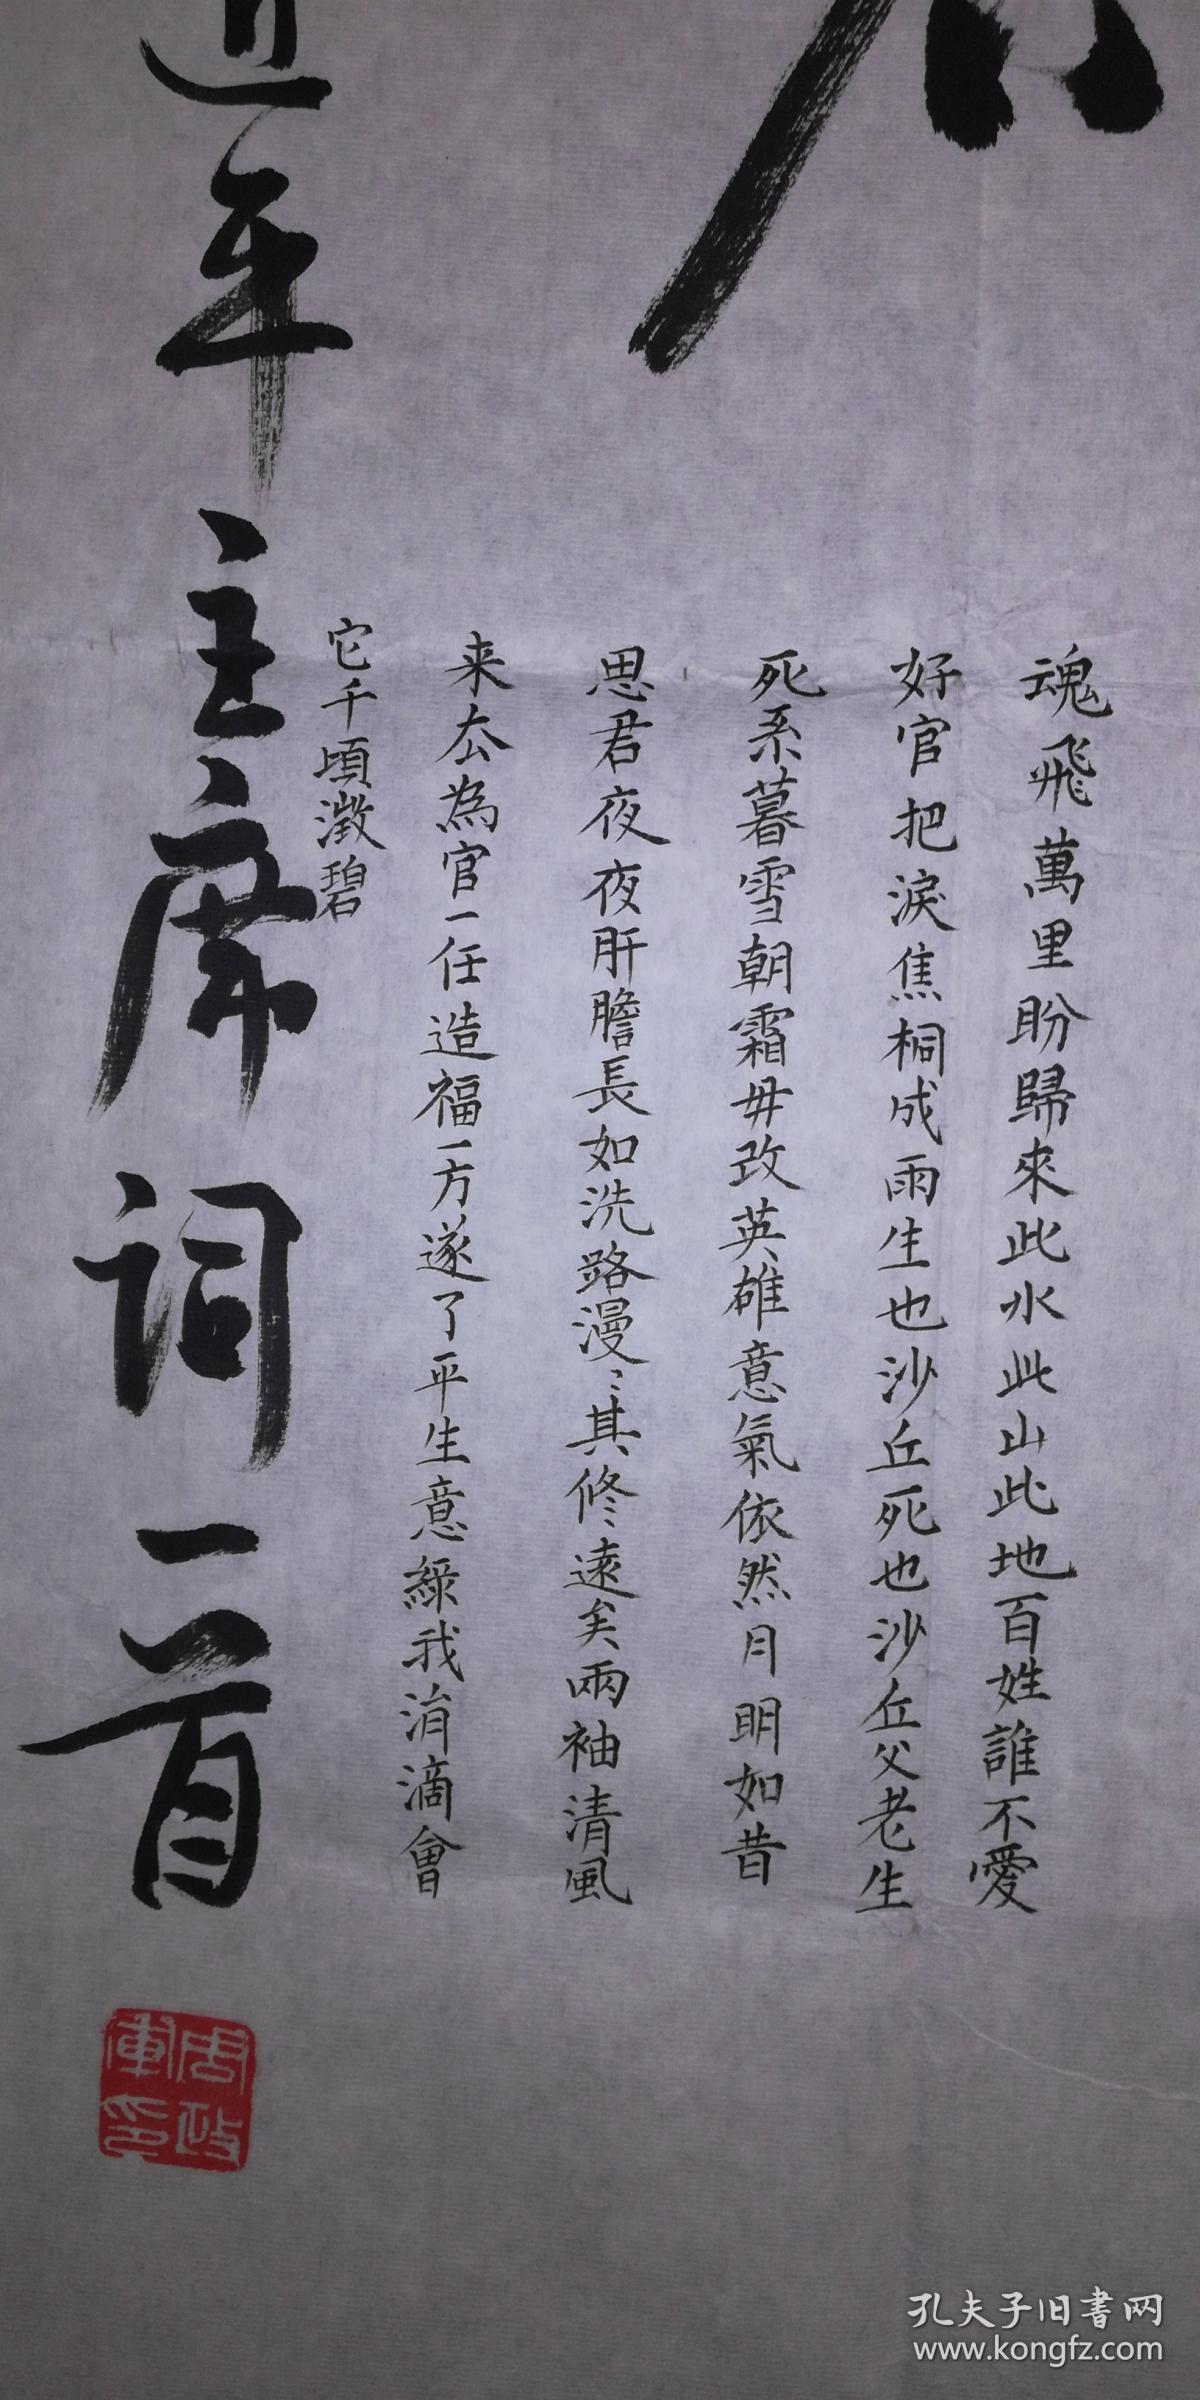 魂飛萬里盼歸來此水此山此地百姓誰不愛
好官把淚焦桐成雨生也沙丘死也沙丘父老生
死系暮雪朝霜毋改英雄意氣依然月明如昔
思君夜夜肝膽長如洗路漫〻其修遠矣兩袖清風
来去為官一任造福一方遂了平生意綠我涓滴會
它千頃澂碧
近年主席词一首
周政軍印
孔夫子旧书网
www.kongfz.com